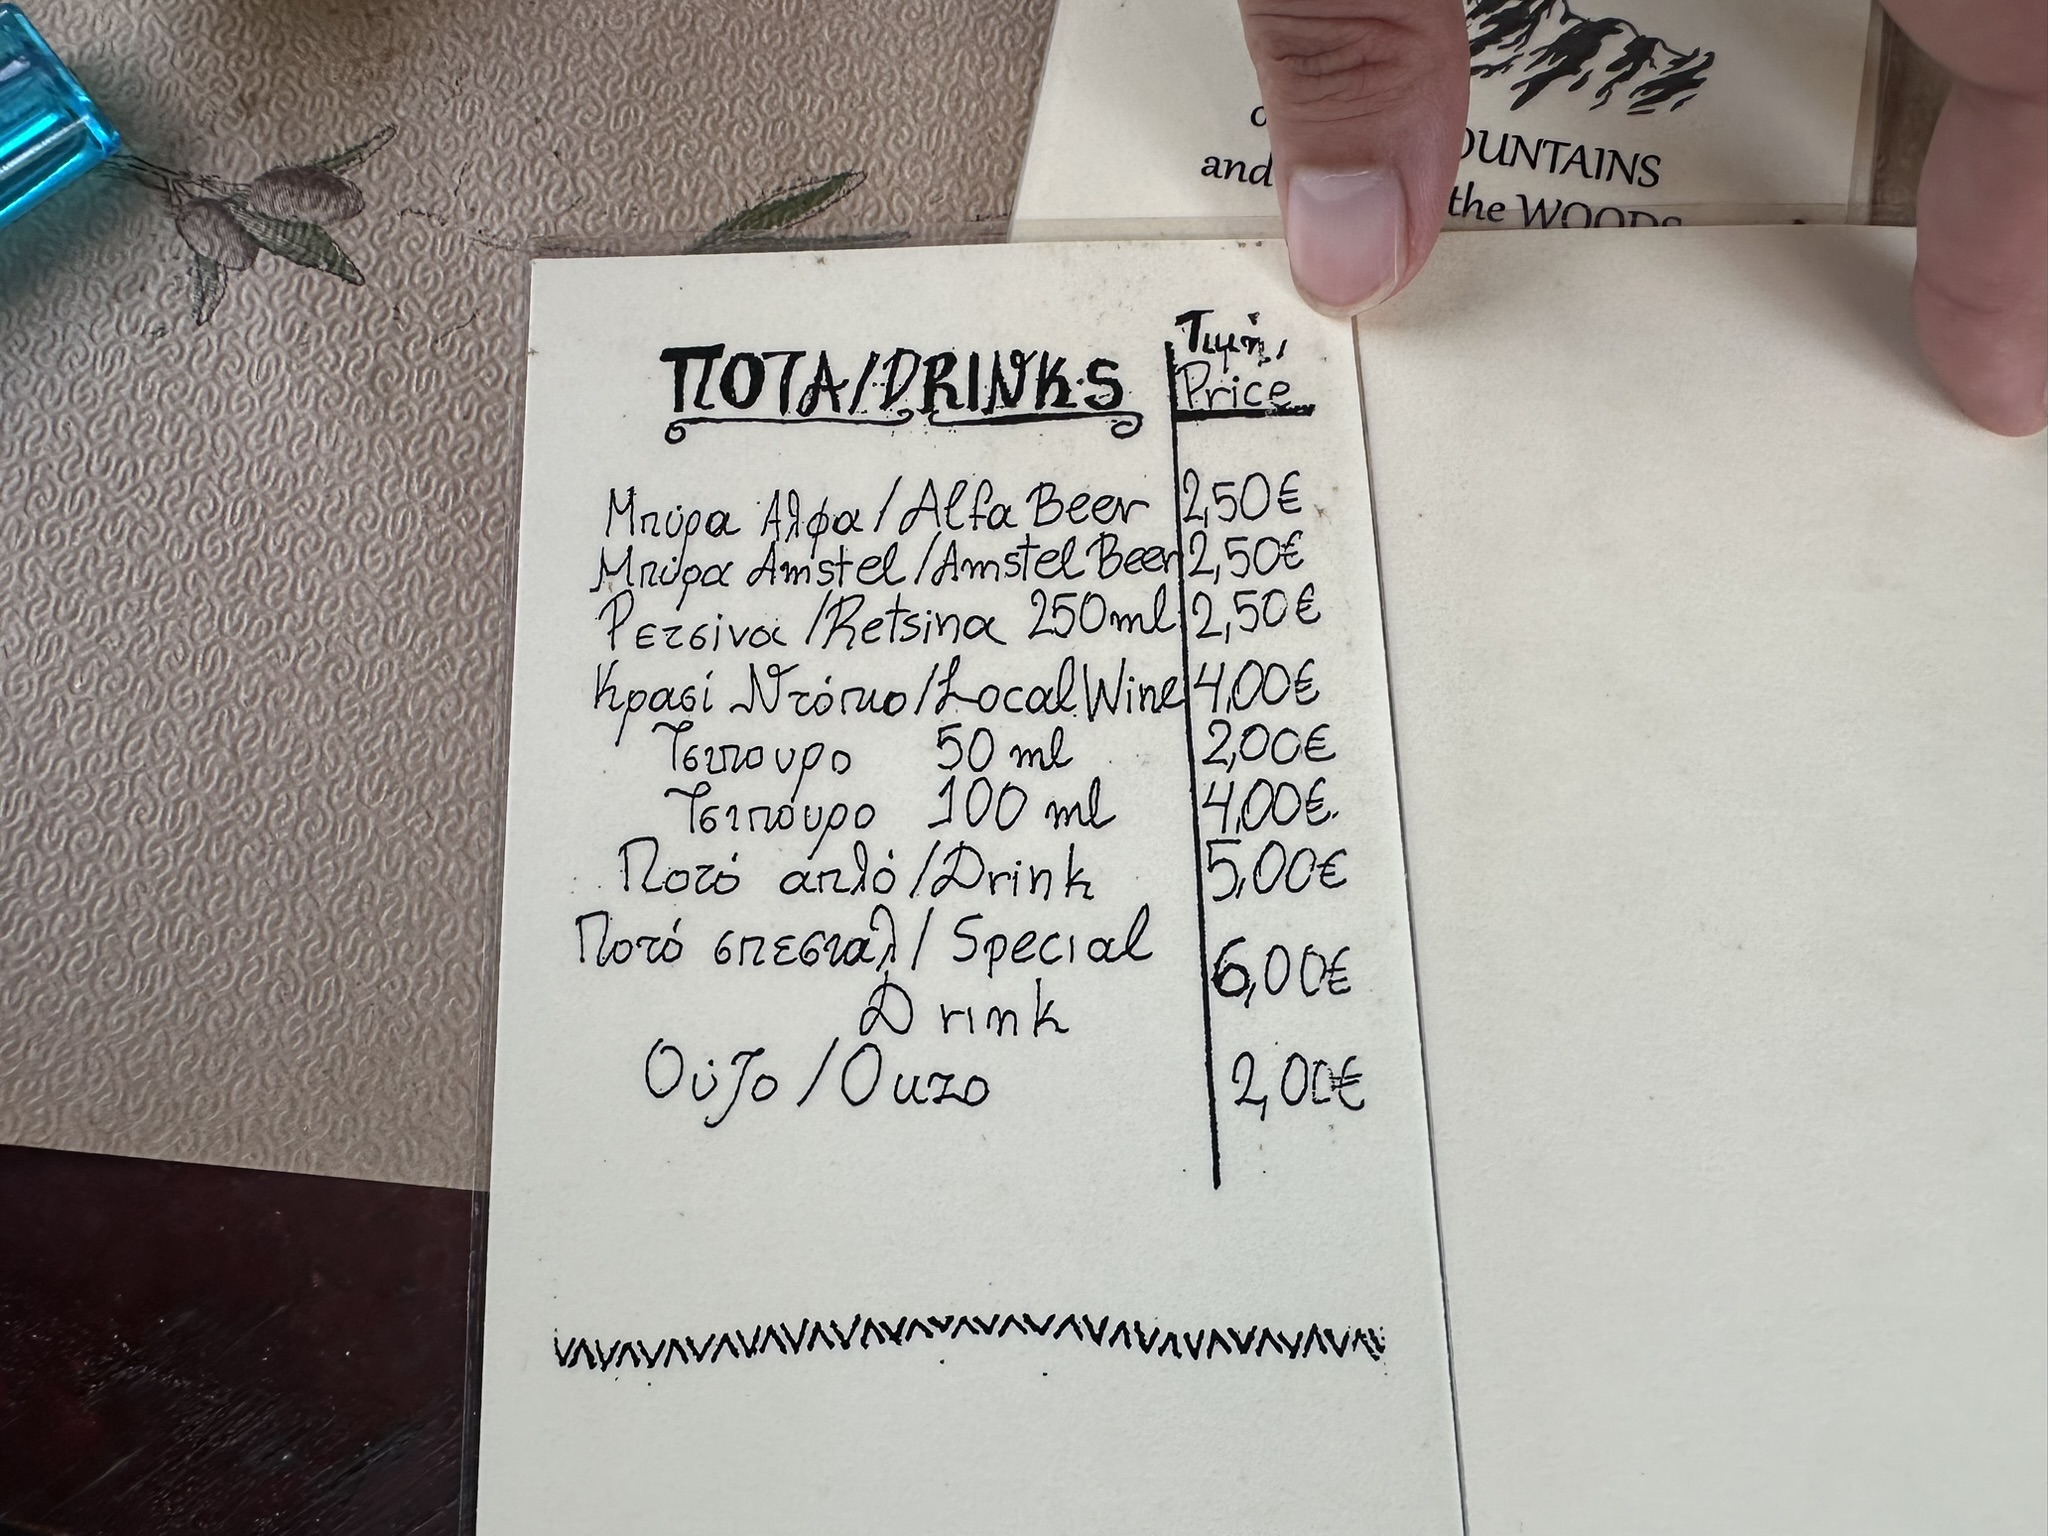 OUNTAINS
and the WOODS
ΠΟΤΑ/DRINKS
Τιμή,
Price
Μπύρα Αλφα/Alfa Beer 2,50€
Μπύρα Amstel/Amstel Beer 2,50€
Ρετσίνα/Retsina 250ml 2,50€
Κρασί Ντόπιο/Local Wine 4,00€
Τσιπουρο 50 ml 2,00€
Τσιπουρο 100 ml 4,00€
Ποτό απλό/Drink 5,00€
Ποτό σπεσιαλ/Special
Drink 6,00€
Ούζο/Ouzo 2,00€